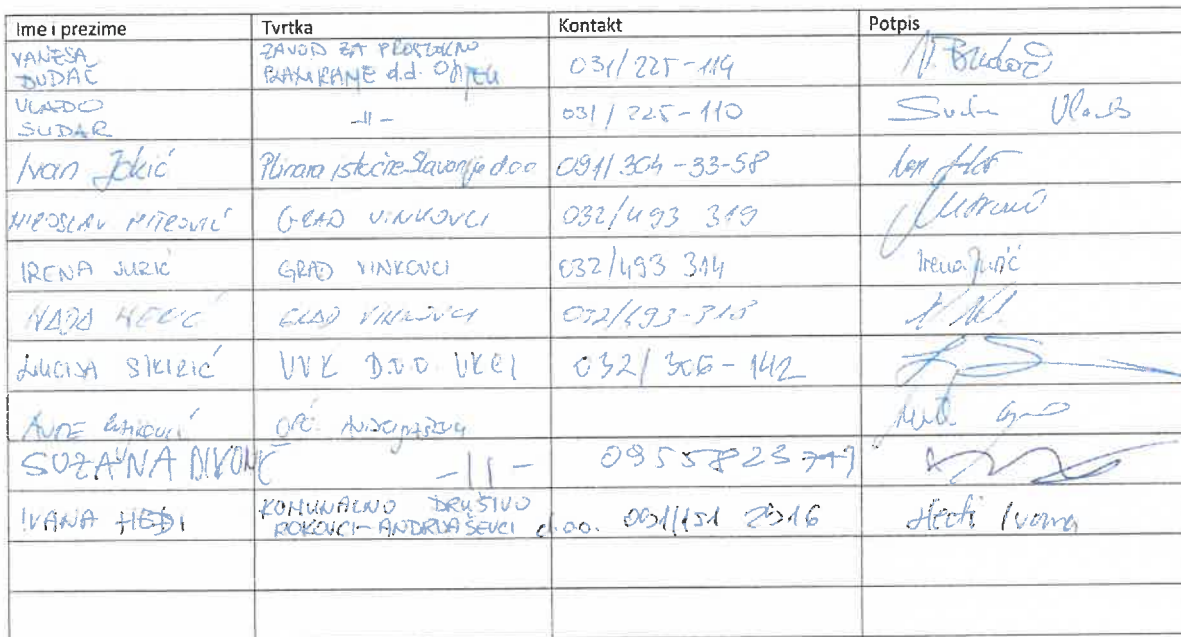 Ime i prezime Tvrtka Kontakt Potpis
VANESA ZAVOD ZA PROSTORNO
BUDAČ PLANIRANJE d.d. OSIJEK 031/225-114 V. Budač
VLADO
SUDAR -||- 031/225-110 Sudar Vlado
Ivan Jokić Plinara istočne Slavonije d.o.o 091/304-33-58
MIROSLAV MITROVIĆ GRAD VINKOVCI 032/493 319
IRENA JURIĆ GRAD VINKOVCI 032/493 314 Irena Jurić
GRAD VINKOVCI
LUCIJA SIKIRIĆ VVK D.O.O. VKCI 032/306-142
OPĆ. ANDRIJAŠEVCI
SUZANA -||-
IVANA HEĐI KOMUNALNO DRUŠTVO
ROKOVCI-ANDRIJAŠEVCI d.o.o. Heđi Ivana